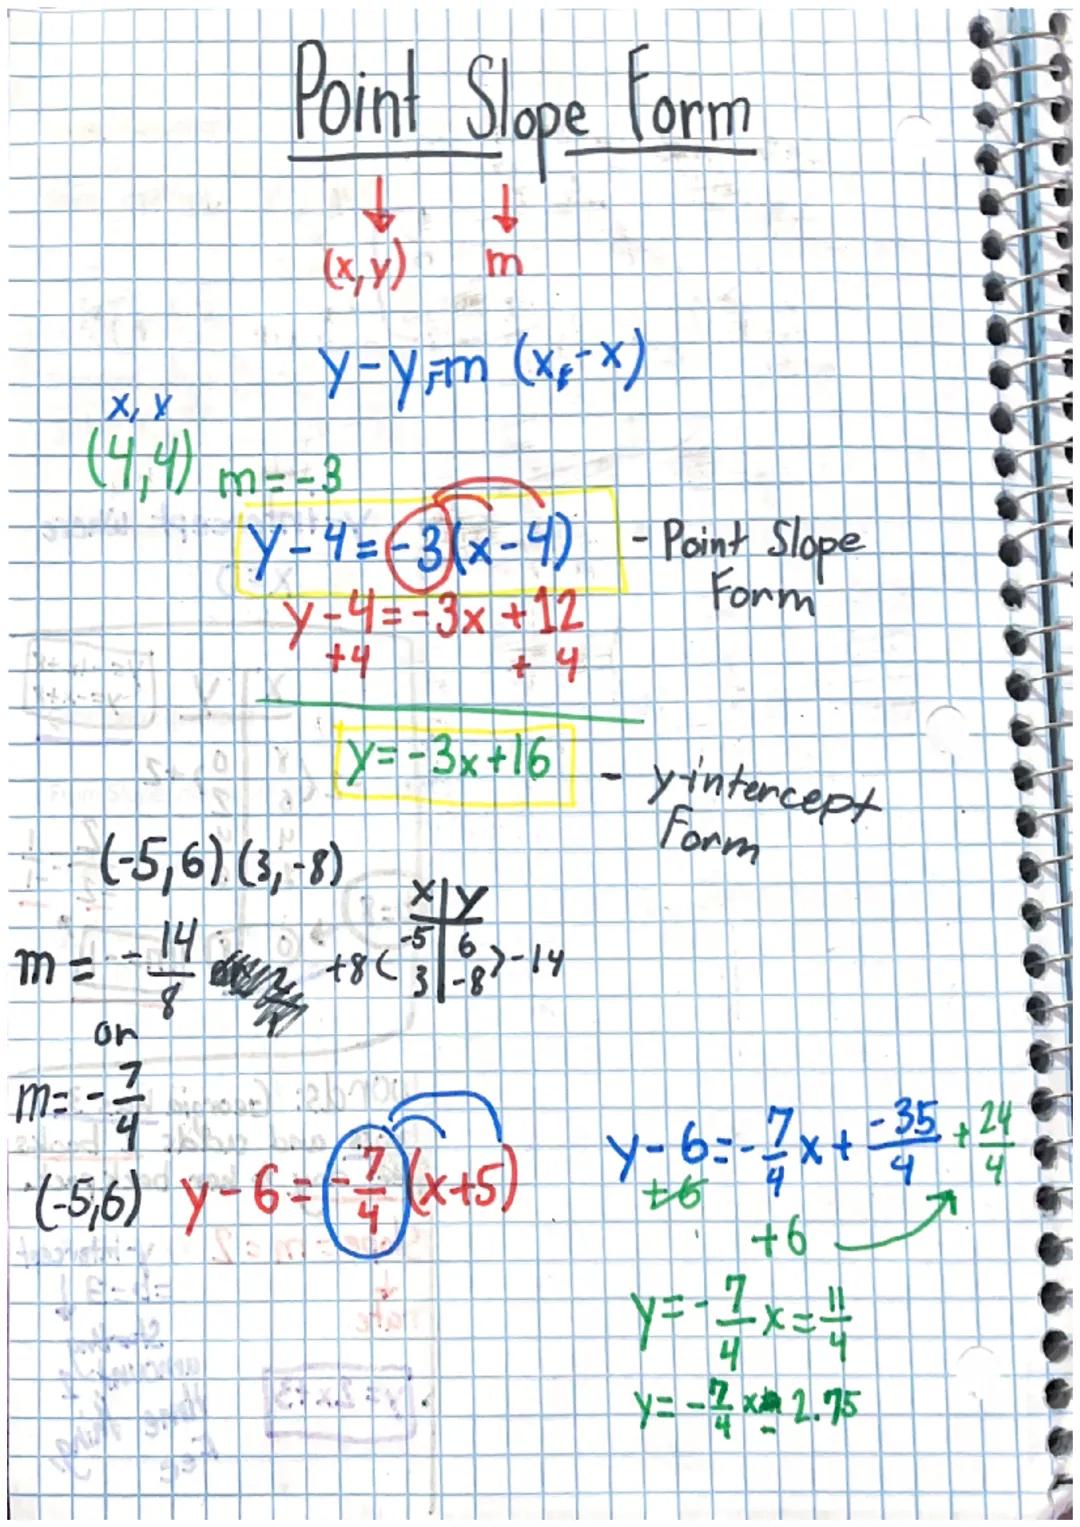 Point Slope Form
(x,y) m
y-y₁=m (x₁-x)
x, y
(4,4) m=-3
y-4=-3(x-4) - Point Slope
Form
y-4=-3x+12
+4 +4
y=-3x+16 - y-intercept
Form
(-5,6) (3,-8)
x | y
m = -14/8 +8 ( -5 | 6 ) -14
3 | -8
or
m=-7/4
(-5,6) y-6=-7/4(x+5)
y-6=-7/4x+-35/4+24/4
+6
+6
y=-7/4x=11/4
y=-7/4x-2.75